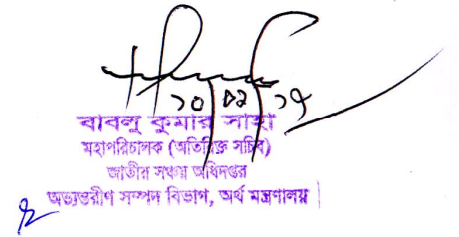 ১০/০২/১৭
বাবলু কুমার সাহা
মহাপরিচালক (অতিরিক্ত সচিব)
জাতীয় সঞ্চয় অধিদপ্তর
অভ্যন্তরীণ সম্পদ বিভাগ, অর্থ মন্ত্রণালয়